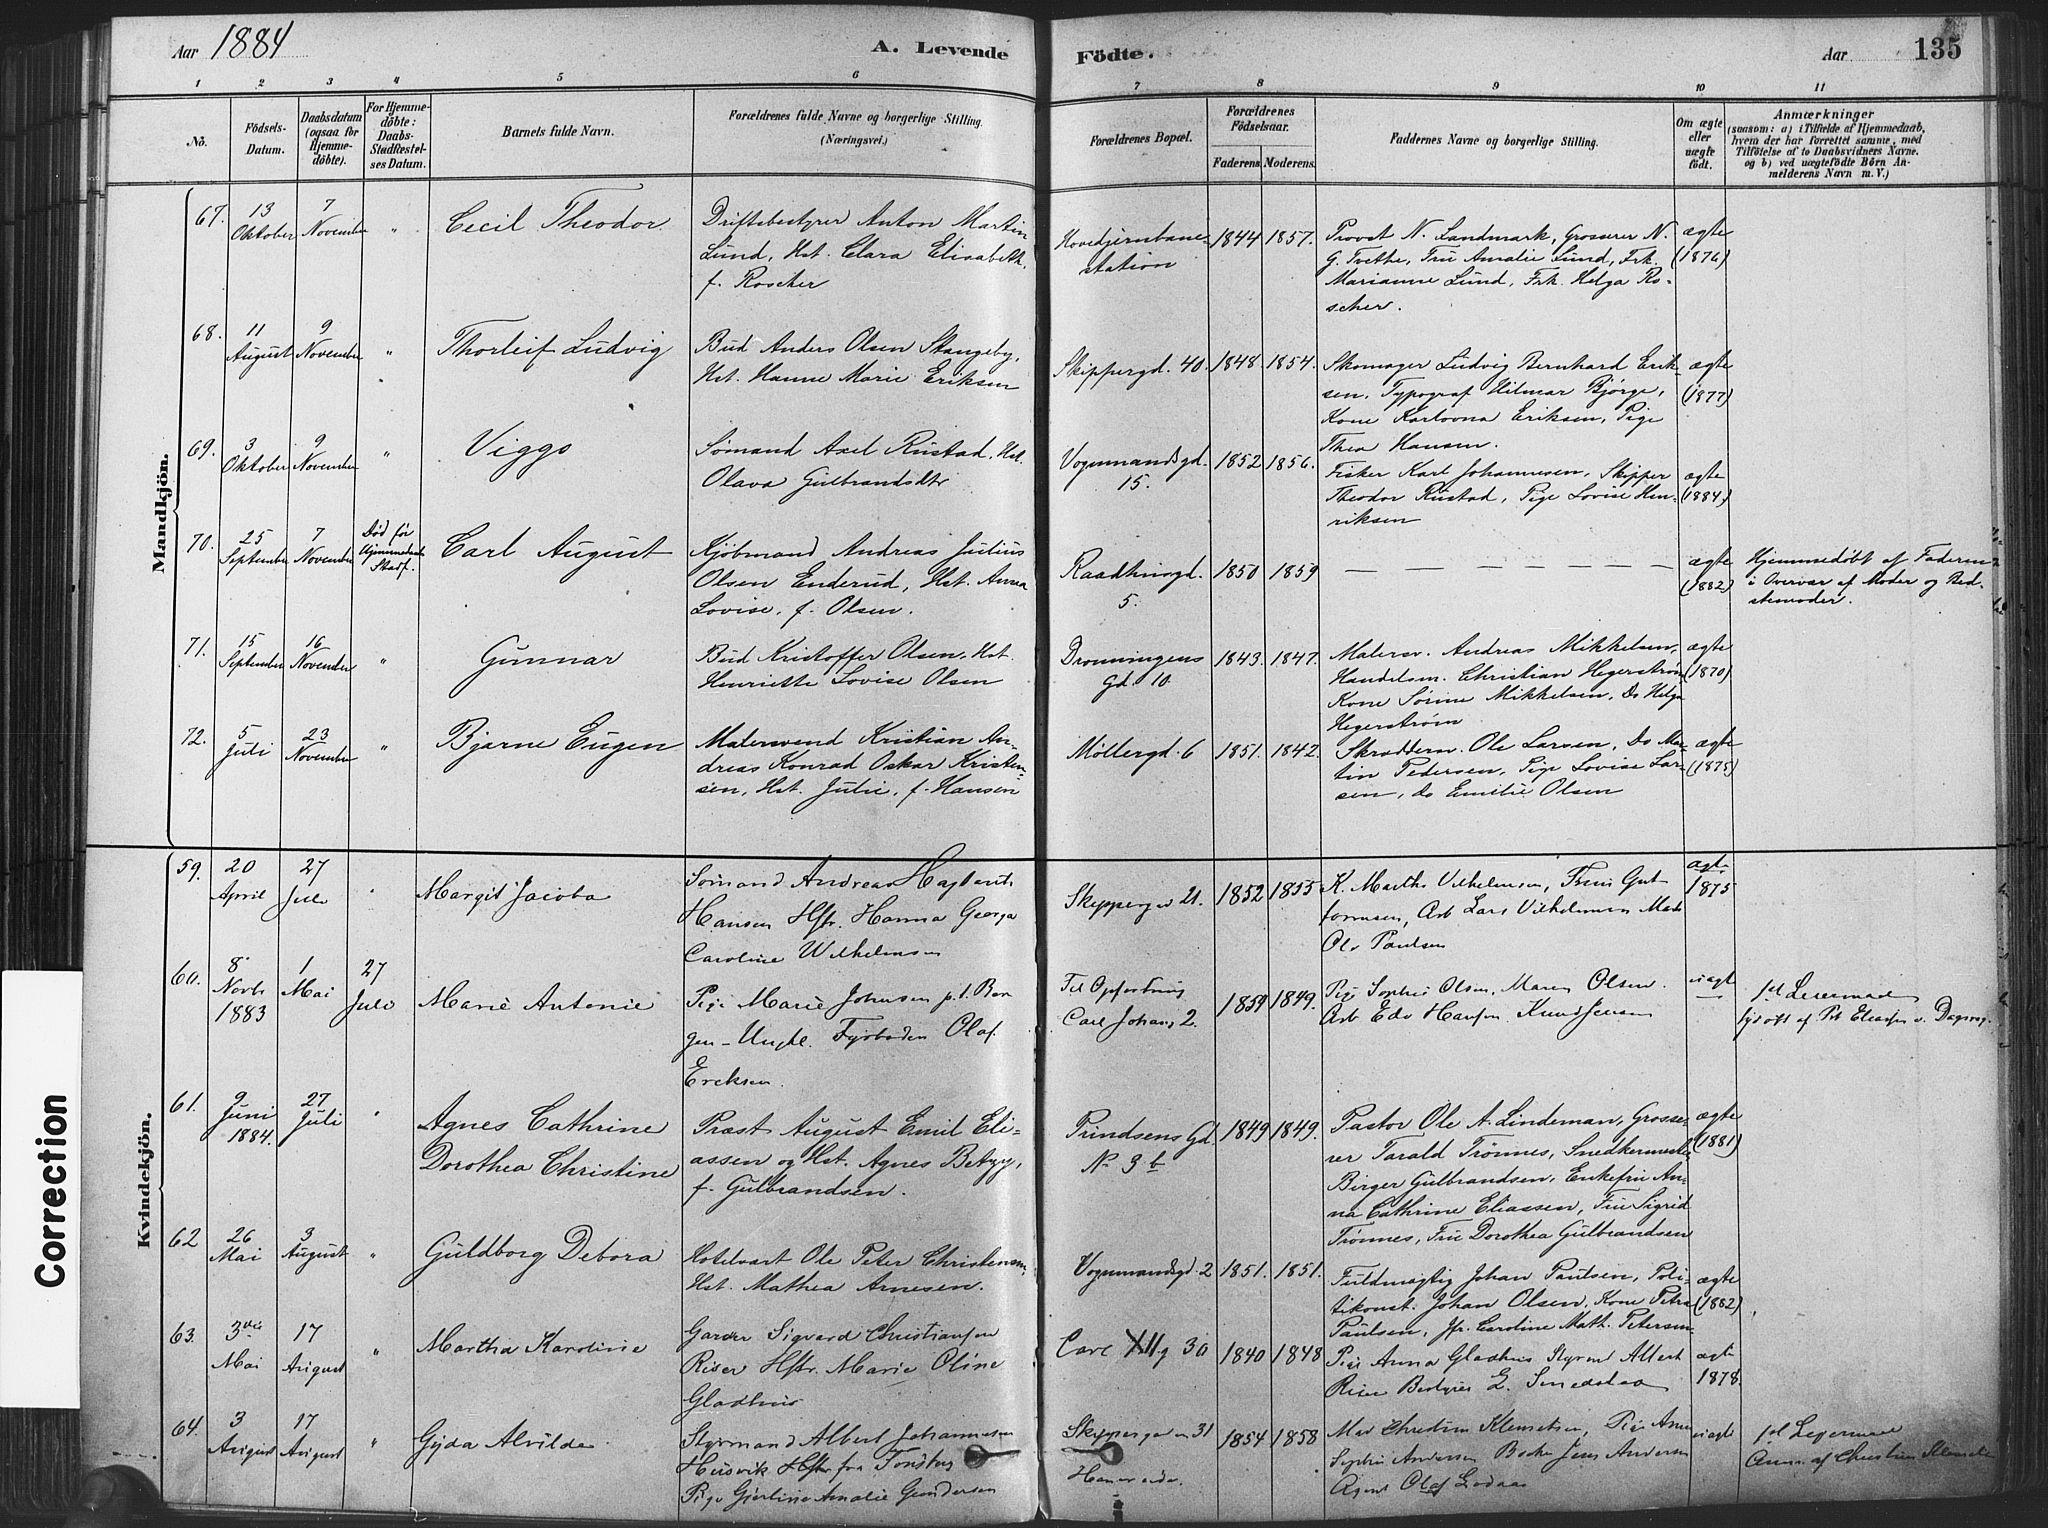 Aar 1884
A. Levende
Födte.
Aar
135
1 2 3 4 5 6 7 8 9 10 11
No.
Födsels-
Datum.
Daabsdatum
(ogsaa för
Hjemme-
döbte).
For Hjemme-
döbte:
Daabs-
Stadfæstel-
ses Datum.
Barnets fulde Navn.
Forældrenes fulde Navne og borgerlige Stilling.
(Næringsvei.)
Forældrenes Bopæl.
Forældrenes
Födselsaar.
Faderens. Moderens.
Faddernes Navne og borgerlige Stilling.
Om ægte
eller
uægte
født.
Anmærkninger
(saasom: a) i Tilfælde af Hjemmedaab,
hvem der har forrettet samme, med
Tilföielse af to Daabsvidners Navne.
og b) ved uægtefödte Börn An-
melderens Navn m. V.)
Mandkjön.
67. 13 Oktober
7 November
"
Cecil Theodor
Driftsbestyrer Anton Martin
Lund, Hst. Clara Elisabeth
f. Roscher
Hovedjernbane-
station
1844 1857.
Provst N. Landmark, Grosserer N.
G. Tvethe, Fru Amalie Lund, Frk.
Marianne Lund, Frk. Helga Ro-
scher.
ægte
(1876)
68. 11 August
9 November
"
Thorleif Ludvig
Bud Anders Olsen Stangeby,
Hst. Hanne Marie Eriksen
Skippergd. 40.
1848. 1854.
Skomager Ludvig Bernhard Erik-
sen, Typograf Hilmar Bjørge,
Kone Karlovna Eriksen, Pige
Thea Hansen.
ægte
(1877)
69. 3 Oktober
9 November
"
Viggo
Sømand Axel Rustad, Hst.
Olava Gulbrandsdtr
Vognmandsgd.
15.
1852 1856.
Fisker Karl Johannesen, Skipper
Theodor Rustad, Pige Lovise Hen-
riksen
ægte
(1884)
70. 25 September
7 November
Død før
Hjemmedaab
Stadf.
Carl August
Kjøbmand Andreas Julius
Olsen Enderud, Hst. Anna
Lovise, f. Olsen.
Raadhusgd.
5.
1850 1859
— — — — — — —
ægte
(1882)
Hjemmedøbt af Faderen
i Overvær af Moder og Bed-
stemoder.
71. 15 September
16 November
"
Gunnar
Bud Kristoffer Olsen, Hst.
Henriette Lovise Olsen
Dronningens
Gd. 10.
1843. 1847.
Malersv. Andreas Mikkelsen,
Handelsm. Christian Hegerstrøm
Kone Sørine Mikkelsen, Do Helga
Hegerstrøm
ægte
(1870)
72. 5 Juli
23 November
"
Bjarne Eugen
Malersvend Kristian An-
dreas Konrad Oskar Kristen-
sen, Hst. Julie, f. Hansen
Møllergd. 6
1851. 1842.
Skræddersv. Ole Larsen, Do Mar-
tin Pedersen, Pige Lovise Lar-
sen, do Emilie Olsen
ægte
(1875)
Kvindekjön.
59. 20 April
27 Juli
Margit Jacoba
Sømand Andreas
Hansen Hstr. Hanna Georga
Caroline Wilhelmsen
Skipperge 21.
1852 1855
K. Martha Vilhelmsen, Fru
Arb Lars Vilhelmsen
Ole Paulsen
ægt
1875
60. 8 Novbr
1883
1 Mai
27 Juli
Marie Antonie
Pige Marie Johnsen p.t. Ber
gen - Ungkl. Fyrbøder Olaf
Ericksen
Til Opfostring
Carl Johans 2.
1859 1849.
Pige Sophie Olsen, Maren Olsen.
Arb Edv Hansen Knud Jensen
uægt
1ste Leiermaal
61. 9 Juni
1884.
27 Juli
Agnes Cathrine
Dorothea Christine
Præst August Emil Eli-
assen og Hst. Agnes Betzy,
f. Gulbrandsen.
Prindsens Gd
No 3 b
1849 1849.
Pastor Ole A. Lindeman, Grosse-
rer Tarald Trønnes, Snedkermester
Birger Gulbrandsen, Enkefru An-
na Cathrine Eliassen, Fru Sigrid
Trønnes, Fru Dorothea Gulbrandsen
ægte
(1881)
62 26 Mai
3 August
"
Guldborg Debora
Hotelvært Ole Peter Christensen,
Hst. Mathea Arnesen.
Vognmandsgd. 2
1851. 1851.
Fuldmægtig Johan Paulsen, Poli-
tikonst. Johan Olsen, Kone Petra
Paulsen, Jfr. Caroline Math. Petersen
ægte
(1882)
63. 3die Mai
17 August
"
Martha Karoline
Garder Sigvard Christiansen
Riser Hstr. Marie Oline
Gladhus
Carl XII g 30
1840 1848
Pige Anna Gladhus Styrmd Albert
Riser Bestyrer L. Smedstad
ægte
1878.
64. 3 August
17 August
"
Gyda Alvilde
Styrmand Albert Johannesen
Husvik fra Tønsberg
Pige Gjerline Amalie Gundersen
Skipperga 31
1854 1858
Christian Klemetsen, Pige Anne
Sophie Andersen Jens Andersen
Agent Olaf
uægte
1ste Leiermaal
Anm. af Christian Klemetsen
Correction